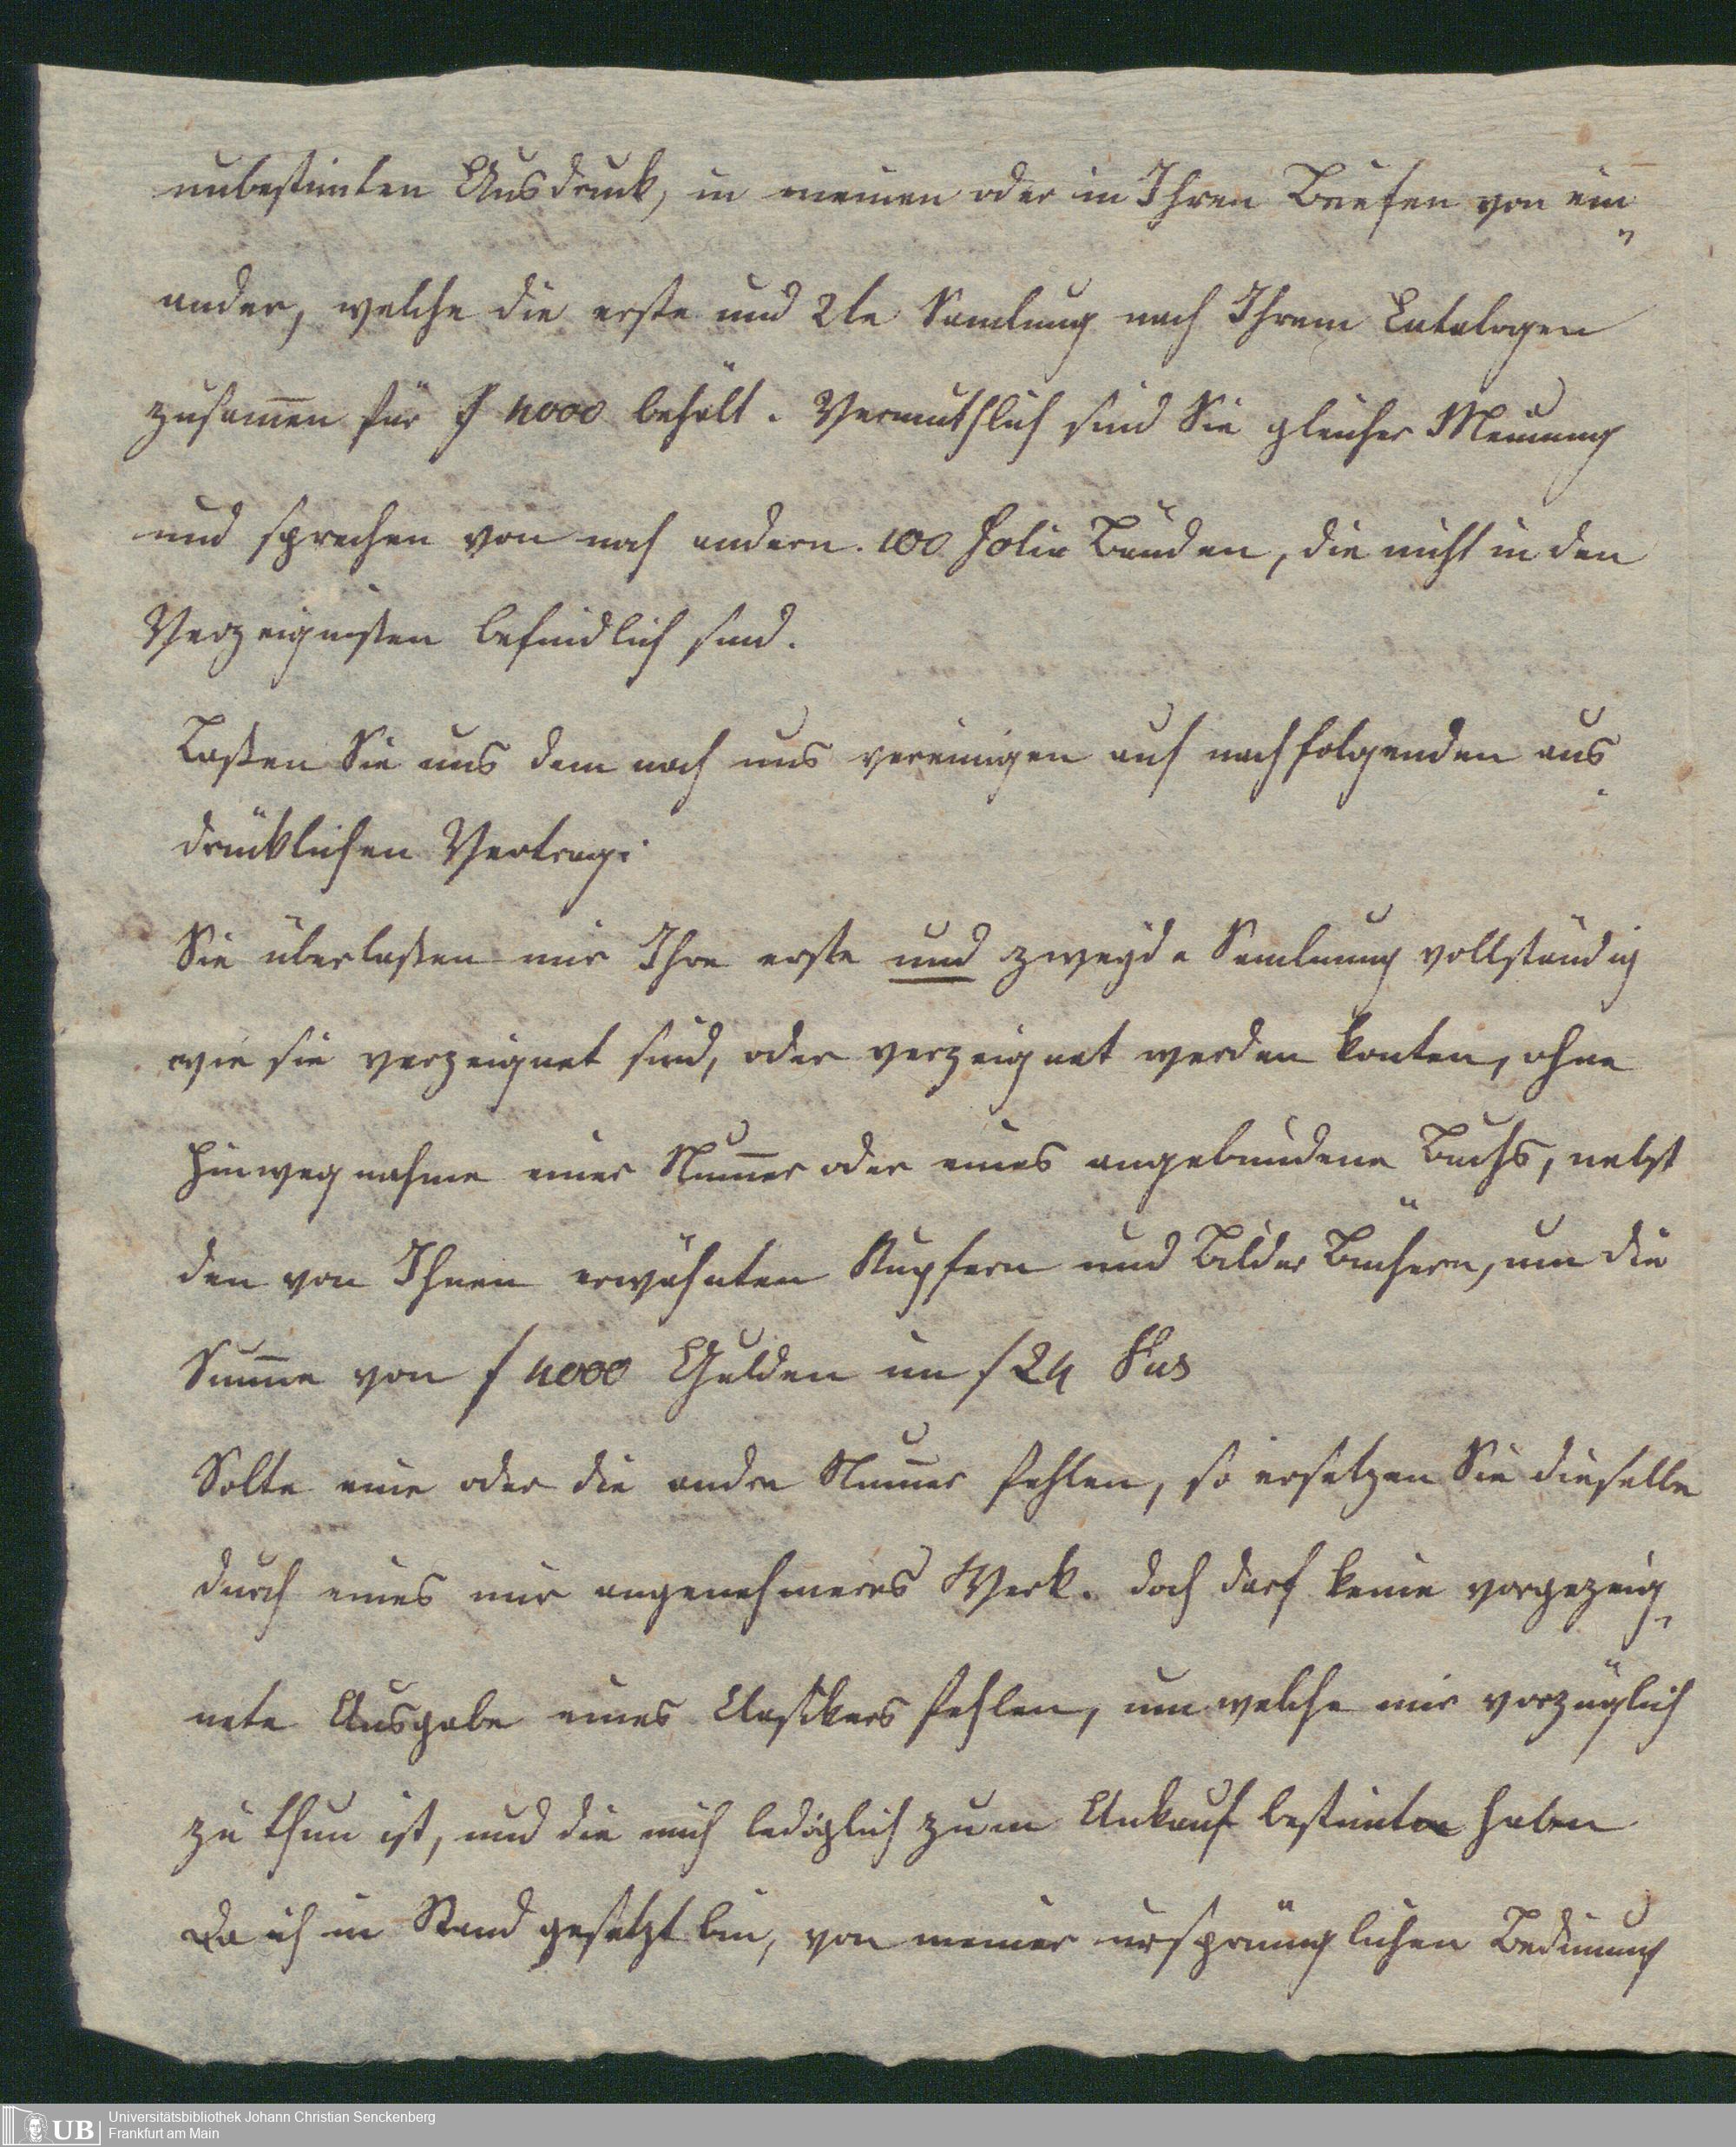 unbestimten Ausdruck, in meinen oder in Ihren Briefen von ein„
ander, welche die erste und 2te Samlung nach Ihrem Catalogen
zusam̄en für f 4000 behält. Vermuthlich sind Sie gleicher Meinung
und sprechen von noch andern. 100 Folio Bänden, die nicht in den
Verzeignißen befindlich sind.
Laßen Sie uns dem nach uns vereinigen auf nachfolgenden aus
drücklichen Vertrag:
Sie überlaßen mir Ihre erste und zweyde Samlung vollständig
wie sie verzeignet sind, oder verzeignet werden konten, ohne
Hinwegnahme einer Num̄er oder eines angebundene Buchs, nebst
den von Ihnen erwähnten Kupfern und Bilder Büchern, um die
Sum̄e von f 4000 Gulden im f 24 Fus
Solte eine oder die andre Num̄er fehlen, so ersetzen Sie dieselbe
durch eines mir angenehmeres Werk. doch darf keine vorgezeig„
nete Ausgabe eines Classikers fehlen, um welche mir vorzüglich
zu thun ist, und die mich lediglich zum Ankauf bestimten haben
Da ich in Stand gesetzt bin, von meiner ursprünglichen Bedinung
UB
Universitätsbibliothek Johann Christian Senckenberg
Frankfurt am Main